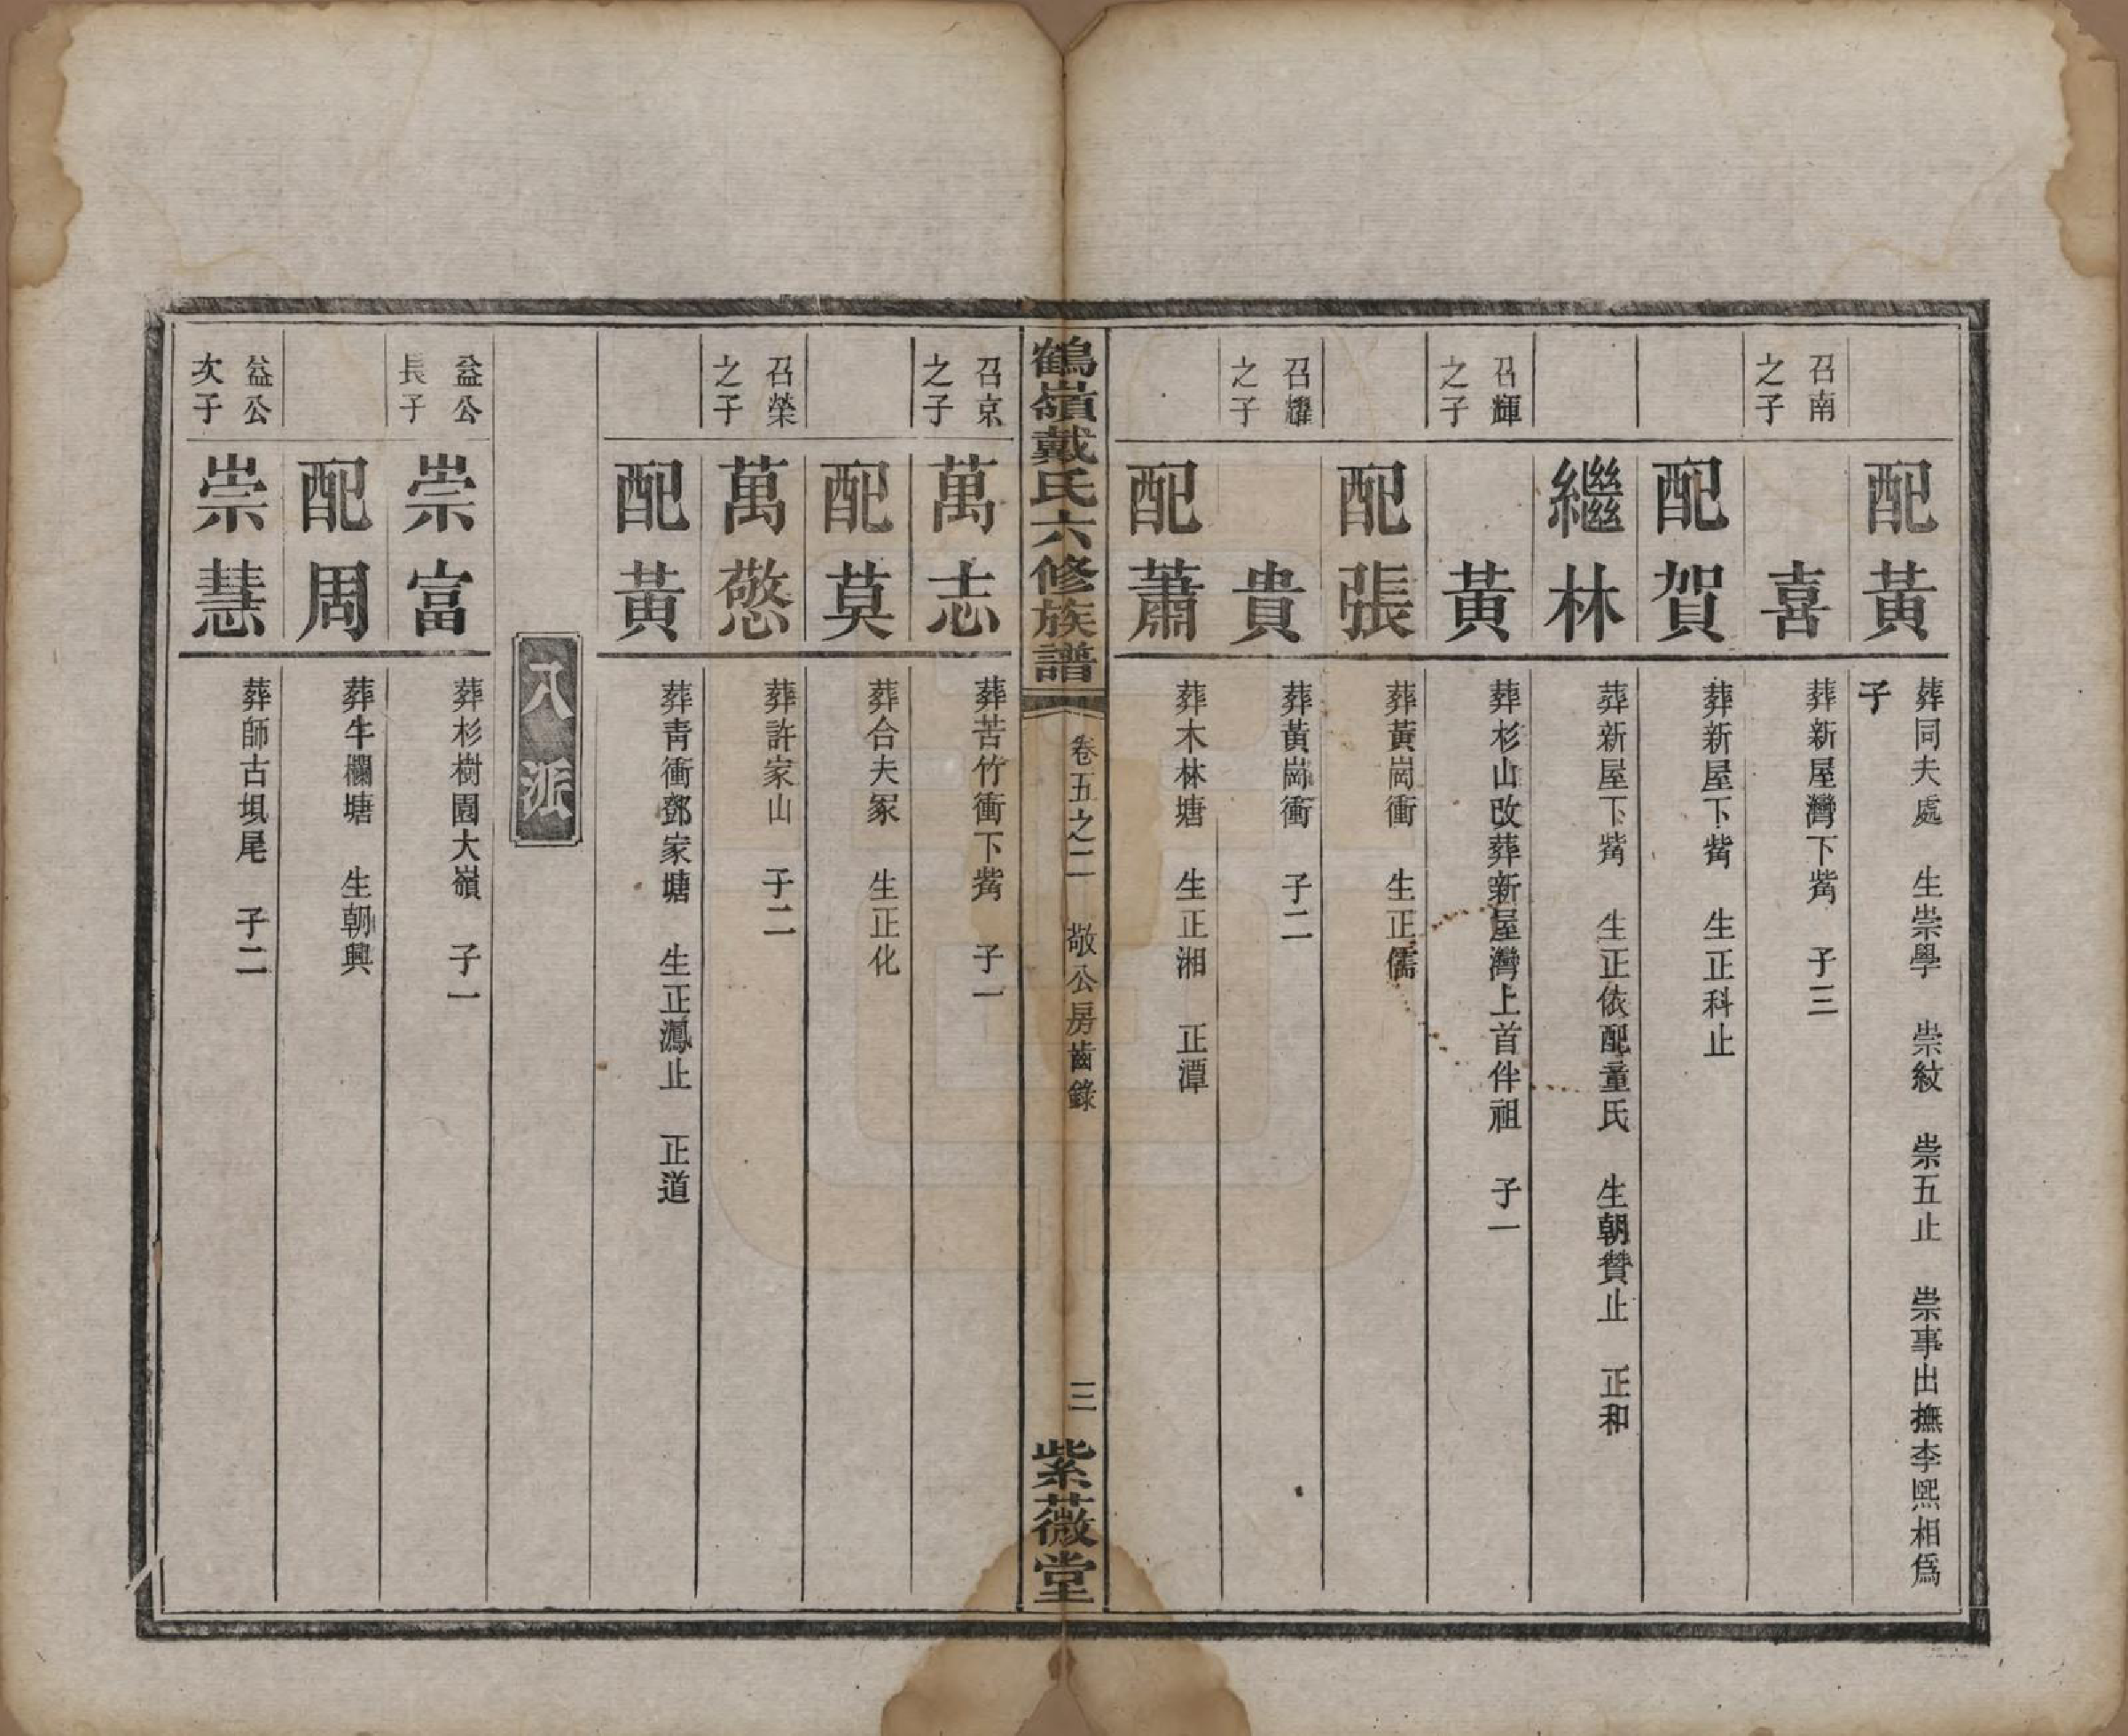 配黃
葬同夫處　生崇學　崇紋　崇五止　崇事出撫李煕相爲
子
召南
之子
喜
葬新屋灣下觜　子三
配賀
葬新屋下觜　生正科止
繼林
葬新屋下觜　生正依配童氏　生朝贊止　正和
召輝
之子
黃
葬杉山改葬新屋灣上首伴祖　子一
配張
葬黃崗衝　生正儒
召耀
之子
貴
葬黃崗衝　子二
配蕭
葬木林塘　生正湘　正潭
鶴嶺戴氏六修族譜
卷五之二　敬公房齒錄
三
紫薇堂
召京
之子
萬志
葬苦竹衝下觜　子一
配莫
葬合夫冢　生正化
召榮
之子
萬憼
葬許家山　子二
配黃
葬靑衝鄧家塘　生正鳳止　正道
八派
益公
長子
崇富
葬杉樹園大嶺　子一
配周
葬牛欄塘　生朝興
益公
次子
崇慧
葬師古垻尾　子二